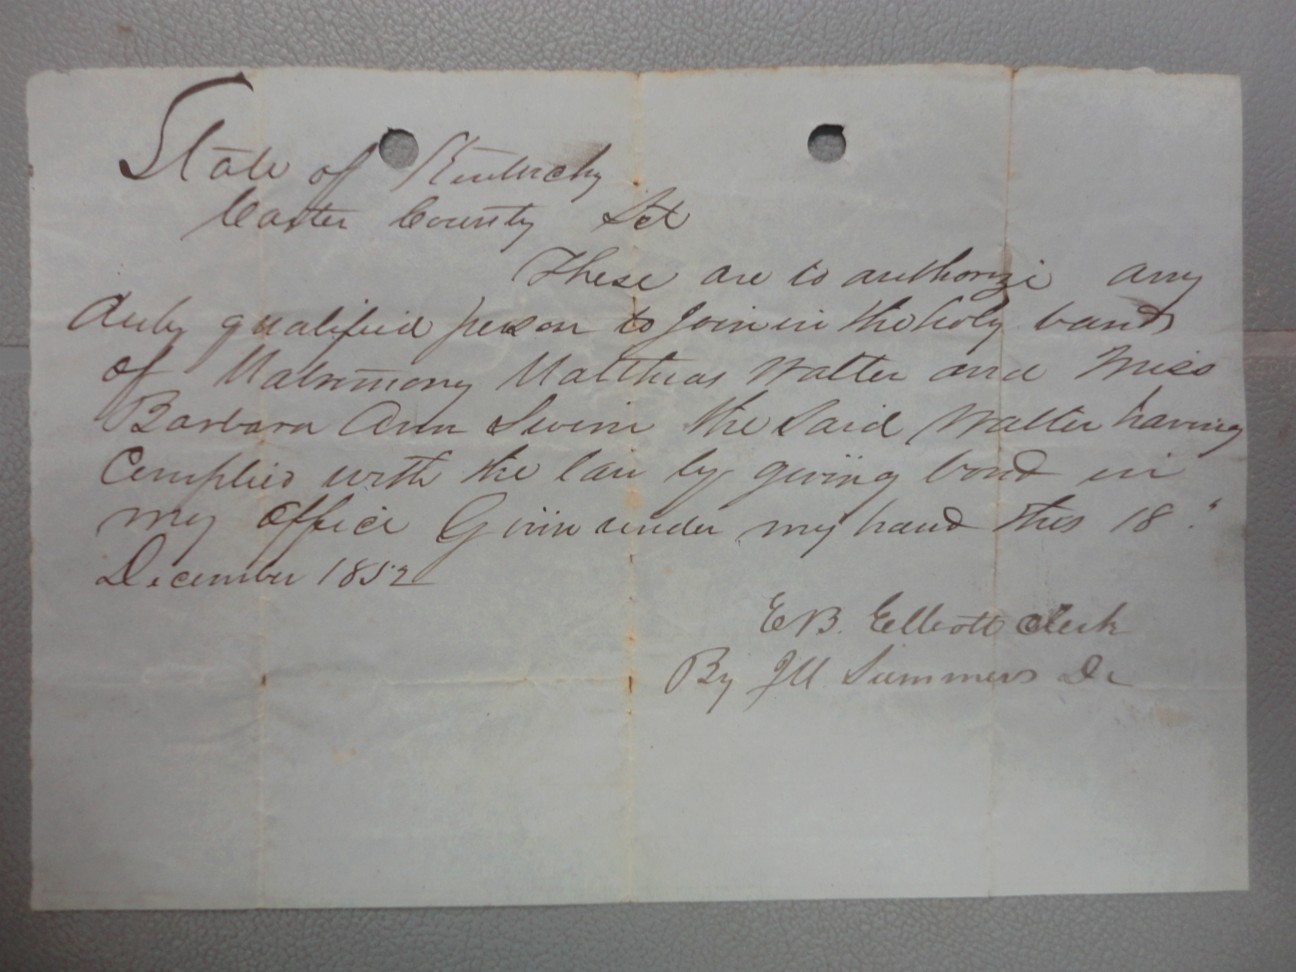 State of Kentucky
Carter County Sct
These are to authorize any
duly qualified person to join in the holy bands
of Matrimony Matthias Walter and Miss
Barbara Ann Swim the said Walter having
Complied with the law by giving bond in
my office Given under my hand this 18"
December 1852
E B. Elliott Clerk
By J M Summers Dc